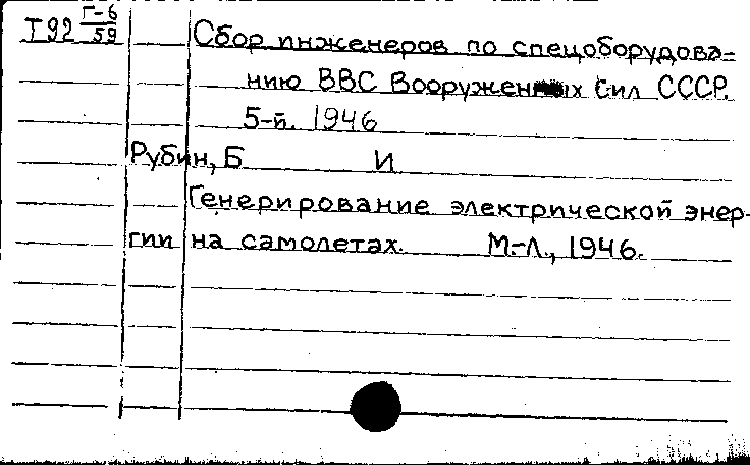 Т92 Г-6/59
Сбор инженеров по спецоборудова-
нию ВВС Вооруженных Сил СССР.
5-й. 1946
Рубин, Б И
Генерирование электрической энер-
гии на самолетах. М.-Л., 1946.